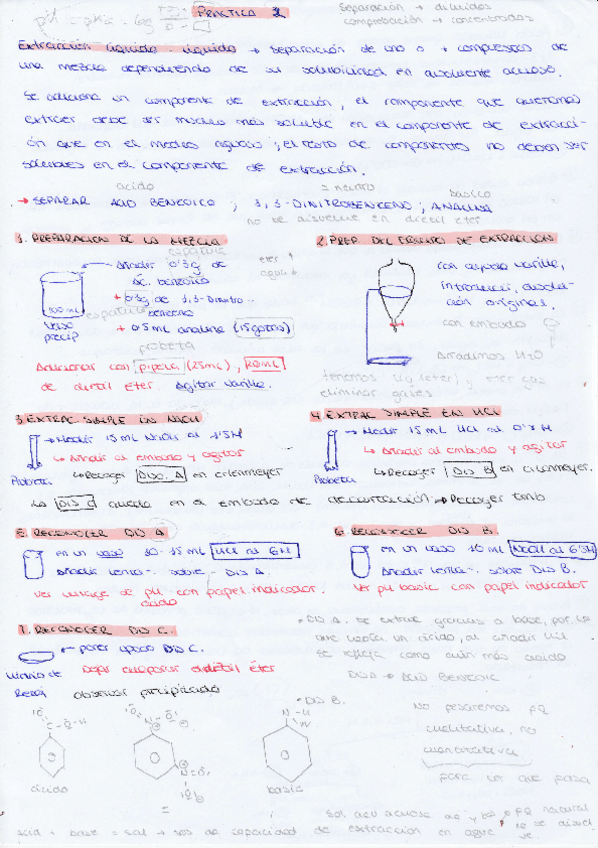 PRACTICA 2
Separación → diluidos
comprobación → concentrados
Extracción líquido - líquido → separación de uno o + compuestos de
una mezcla dependiendo de su solubilidad en disolvente acuoso.
Se adiciona un componente de extracción, el componente que queremos
extraer debe ser mucho más soluble en el componente de extracci-
ón que en el medio aquoso; el resto de componentes no deben ser
solubles en el componente de extracción.
acido
= neutro
basico
→ SEPARAR ACID BENZOICO ; 1,3-DINITROBENCENO ; ANALINA
no se disuelve en dietil eter
1. PREPARACION DE LA MEZCLA
espatula
Añadir 0'3g de
ac. benzoico
+ 0'3g de 1,3-Dinitro-
espatula
benceno
+ 0'5 mL analina (15 gotas)
probeta
100 mL
vaso
precip
eter ↑
agua ↓
Adicionar con pipeta (25mL), 20mL
de dietil eter. Agitar varilla.
2. PREP. DEL EQUIPO DE EXTRACCION
con ayuda varilla,
introducir disolu-
ción original.
con embudo
Añadimos H2O
tenemos liq (eter) y eter gas
eliminar gases
3. EXTRAC SIMPLE EN NaOH
→ Medir 15 mL NaOH al 1'5M
↳ Añadir al embudo y agitar
↳ Recoger DIS. A en erlenmeyer
Probeta
4. EXTRAC SIMPLE EN HCl
→ Medir 15 mL HCl al 0'5 M
↳ Añadir al embudo y agitar
↳ Recoger DIS B en erlenmeyer.
Probeta
La DIS C queda en el embudo de decantación → Recoger tanto
5. RECONOCER DIS A
en un vaso 10-15 mL HCl al 6M
Añadir lenta-. sobre DIS A.
ver viraje de pH con papel indicador.
acido
6. RECONOCER DIS B.
en un vaso 10 mL NaOH al 6'5M
Añadir lenta-. sobre DIS B.
Ver pH basic con papel indicador
7. RECONOCER DIS C.
→ poner upoco DIS C.
Vidrio de
Reloj
Dejar evaporar dietil éter
observar precipitado
• DIS A. Se extrae gracias a base, por lo
que había un ácido, al añadir HCl
se refleja como aún más acido
DISA → ACID BENZOIC
• DIS B.
No pesaremos pq
cualitativa, no
cuantitativa
para ver que pasa
ácido
=
basic
acid + base = sal → sos de capacidad de extracción en agua